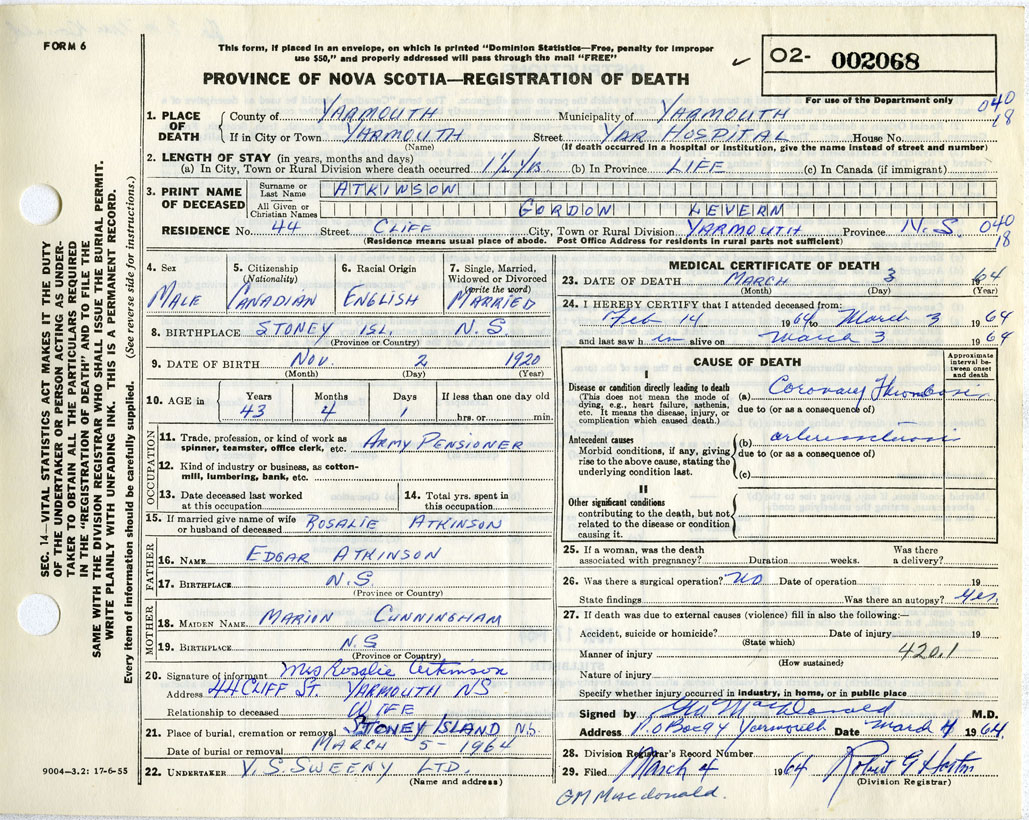 FORM 6
This form, if placed in an envelope, on which is printed "Dominion Statistics—Free, penalty for improper
use $50," and properly addressed will pass through the mail "FREE"
PROVINCE OF NOVA SCOTIA—REGISTRATION OF DEATH
✓ 02- 002068
For use of the Department only
040
18
1. PLACE OF DEATH
County of YARMOUTH Municipality of YARMOUTH
If in City or Town YARMOUTH Street YAR HOSPITAL House No.
(Name) (If death occurred in a hospital or institution, give the name instead of street and number)
2. LENGTH OF STAY (in years, months and days)
(a) In City, Town or Rural Division where death occurred 1 1/2 Yrs (b) In Province LIFE (c) In Canada (if immigrant)
3. PRINT NAME OF DECEASED
Surname or Last Name ATKINSON
All Given or Christian Names GORDON LEVERM
RESIDENCE No. 44 Street CLIFF City, Town or Rural Division YARMOUTH Province N.S. 040
18
(Residence means usual place of abode. Post Office Address for residents in rural parts not sufficient)
4. Sex MALE
5. Citizenship (Nationality) CANADIAN
6. Racial Origin ENGLISH
7. Single, Married, Widowed or Divorced (write the word) MARRIED
8. BIRTHPLACE STONEY ISL. N.S.
(Province or Country)
9. DATE OF BIRTH NOV. 2 1920
(Month) (Day) (Year)
10. AGE in Years 43 Months 4 Days 1 If less than one day old
hrs. or min.
OCCUPATION
11. Trade, profession, or kind of work as spinner, teamster, office clerk, etc. ARMY PENSIONER
12. Kind of industry or business, as cotton-mill, lumbering, bank, etc.
13. Date deceased last worked at this occupation
14. Total yrs. spent in this occupation
15. If married give name of wife or husband of deceased ROSALIE ATKINSON
FATHER
16. NAME EDGAR ATKINSON
17. BIRTHPLACE N.S
(Province or Country)
MOTHER
18. MAIDEN NAME MARION CUNNINGHAM
19. BIRTHPLACE N.S
(Province or Country)
20. Signature of informant Mrs Rosalie Atkinson
Address 44 CLIFF ST. YARMOUTH NS
Relationship to deceased WIFE
21. Place of burial, cremation or removal STONEY ISLAND N.S.
Date of burial or removal MARCH 5-1964
22. UNDERTAKER V.S. SWEENY LTD.
(Name and address)
MEDICAL CERTIFICATE OF DEATH
23. DATE OF DEATH MARCH 3 1964
(Month) (Day) (Year)
24. I HEREBY CERTIFY that I attended deceased from:
Feb 14 1964 to March 3 1964
and last saw him alive on March 3 1964
CAUSE OF DEATH
Approximate interval between onset and death
I
Disease or condition directly leading to death
(This does not mean the mode of dying, e.g., heart failure, asthenia, etc. It means the disease, injury, or complication which caused death.)
(a) Coronary Thrombosis
due to (or as a consequence of)
Antecedent causes
Morbid conditions, if any, giving rise to the above cause, stating the underlying condition last.
(b) arteriosclerosis
due to (or as a consequence of)
(c)
II
Other significant conditions
contributing to the death, but not related to the disease or condition causing it.
25. If a woman, was the death associated with pregnancy? Duration weeks. Was there a delivery?
26. Was there a surgical operation? No Date of operation 19
State findings Was there an autopsy? Yes.
27. If death was due to external causes (violence) fill in also the following:—
Accident, suicide or homicide? Date of injury 19
(State which)
Manner of injury 420.1
(How sustained)
Nature of injury
Specify whether injury occurred in industry, in home, or in public place
Signed by MacDonald M.D.
Address P.O Box 94 Yarmouth Date March 4 1964
28. Division Registrar's Record Number
29. Filed March 4 1964 Robert G Horton
(Division Registrar)
GM Macdonald.
9004-3.2: 17-6-55
SEC. 14—VITAL STATISTICS ACT MAKES IT THE DUTY
OF THE UNDERTAKER OR PERSON ACTING AS UNDER-
TAKER TO OBTAIN ALL THE PARTICULARS REQUIRED
IN THE "REGISTRATION OF DEATH" AND TO FILE THE
SAME WITH THE DIVISION REGISTRAR WHO SHALL ISSUE THE BURIAL PERMIT.
WRITE PLAINLY WITH UNFADING INK. THIS IS A PERMANENT RECORD.
Every item of information should be carefully supplied. (See reverse side for instructions.)